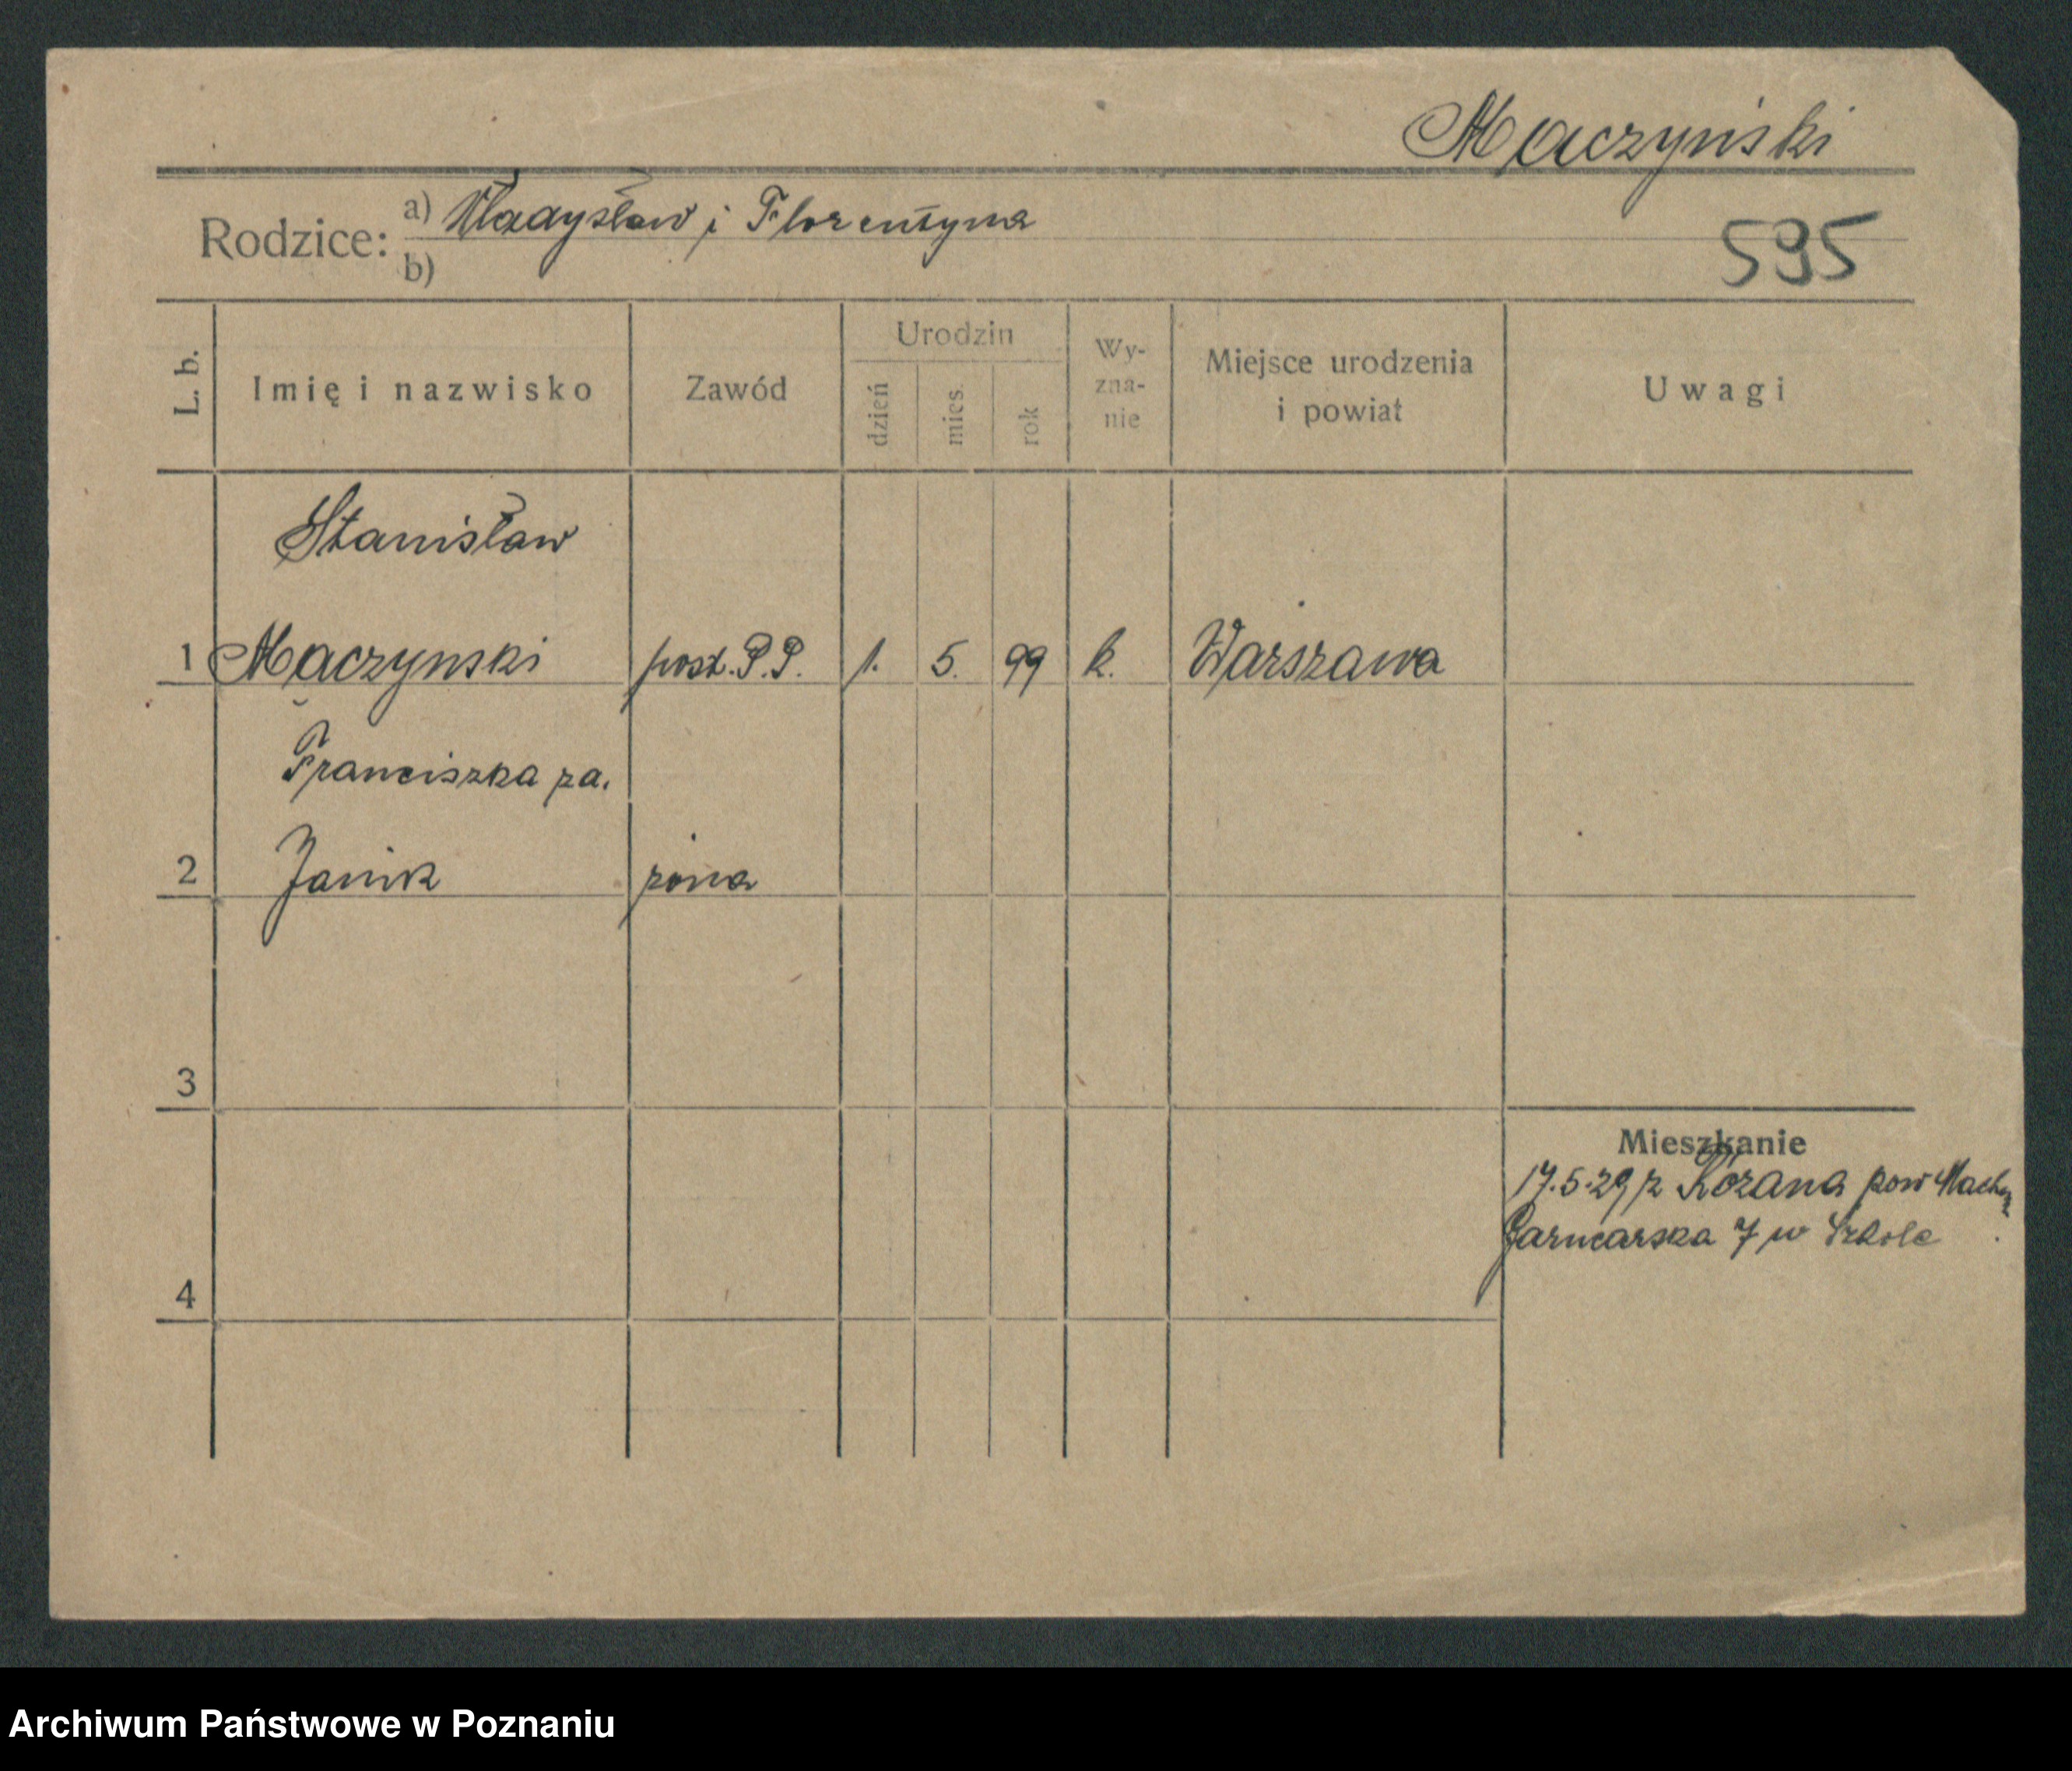 Maczyński
Rodzice: a) Władysław i Florentyna
b)
595
L. b.
Imię i nazwisko
Zawód
Urodzin
dzień
mies.
rok
Wy-
zna-
nie
Miejsce urodzenia
i powiat
Uwagi
Stanisław
1 Maczynski post. P.P. 1. 5. 99 k. Warszawa
Franciszka za.
2 Janik żona
3
Mieszkanie
17.5.29 z pow
Garncarska 7 w Szkole
4
Archiwum Państwowe w Poznaniu